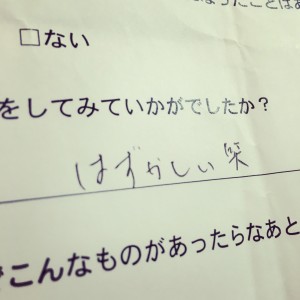 なったことはあ
□ない
をしてみていかがでしたか？
はずかしい笑
こんなものがあったらなあと